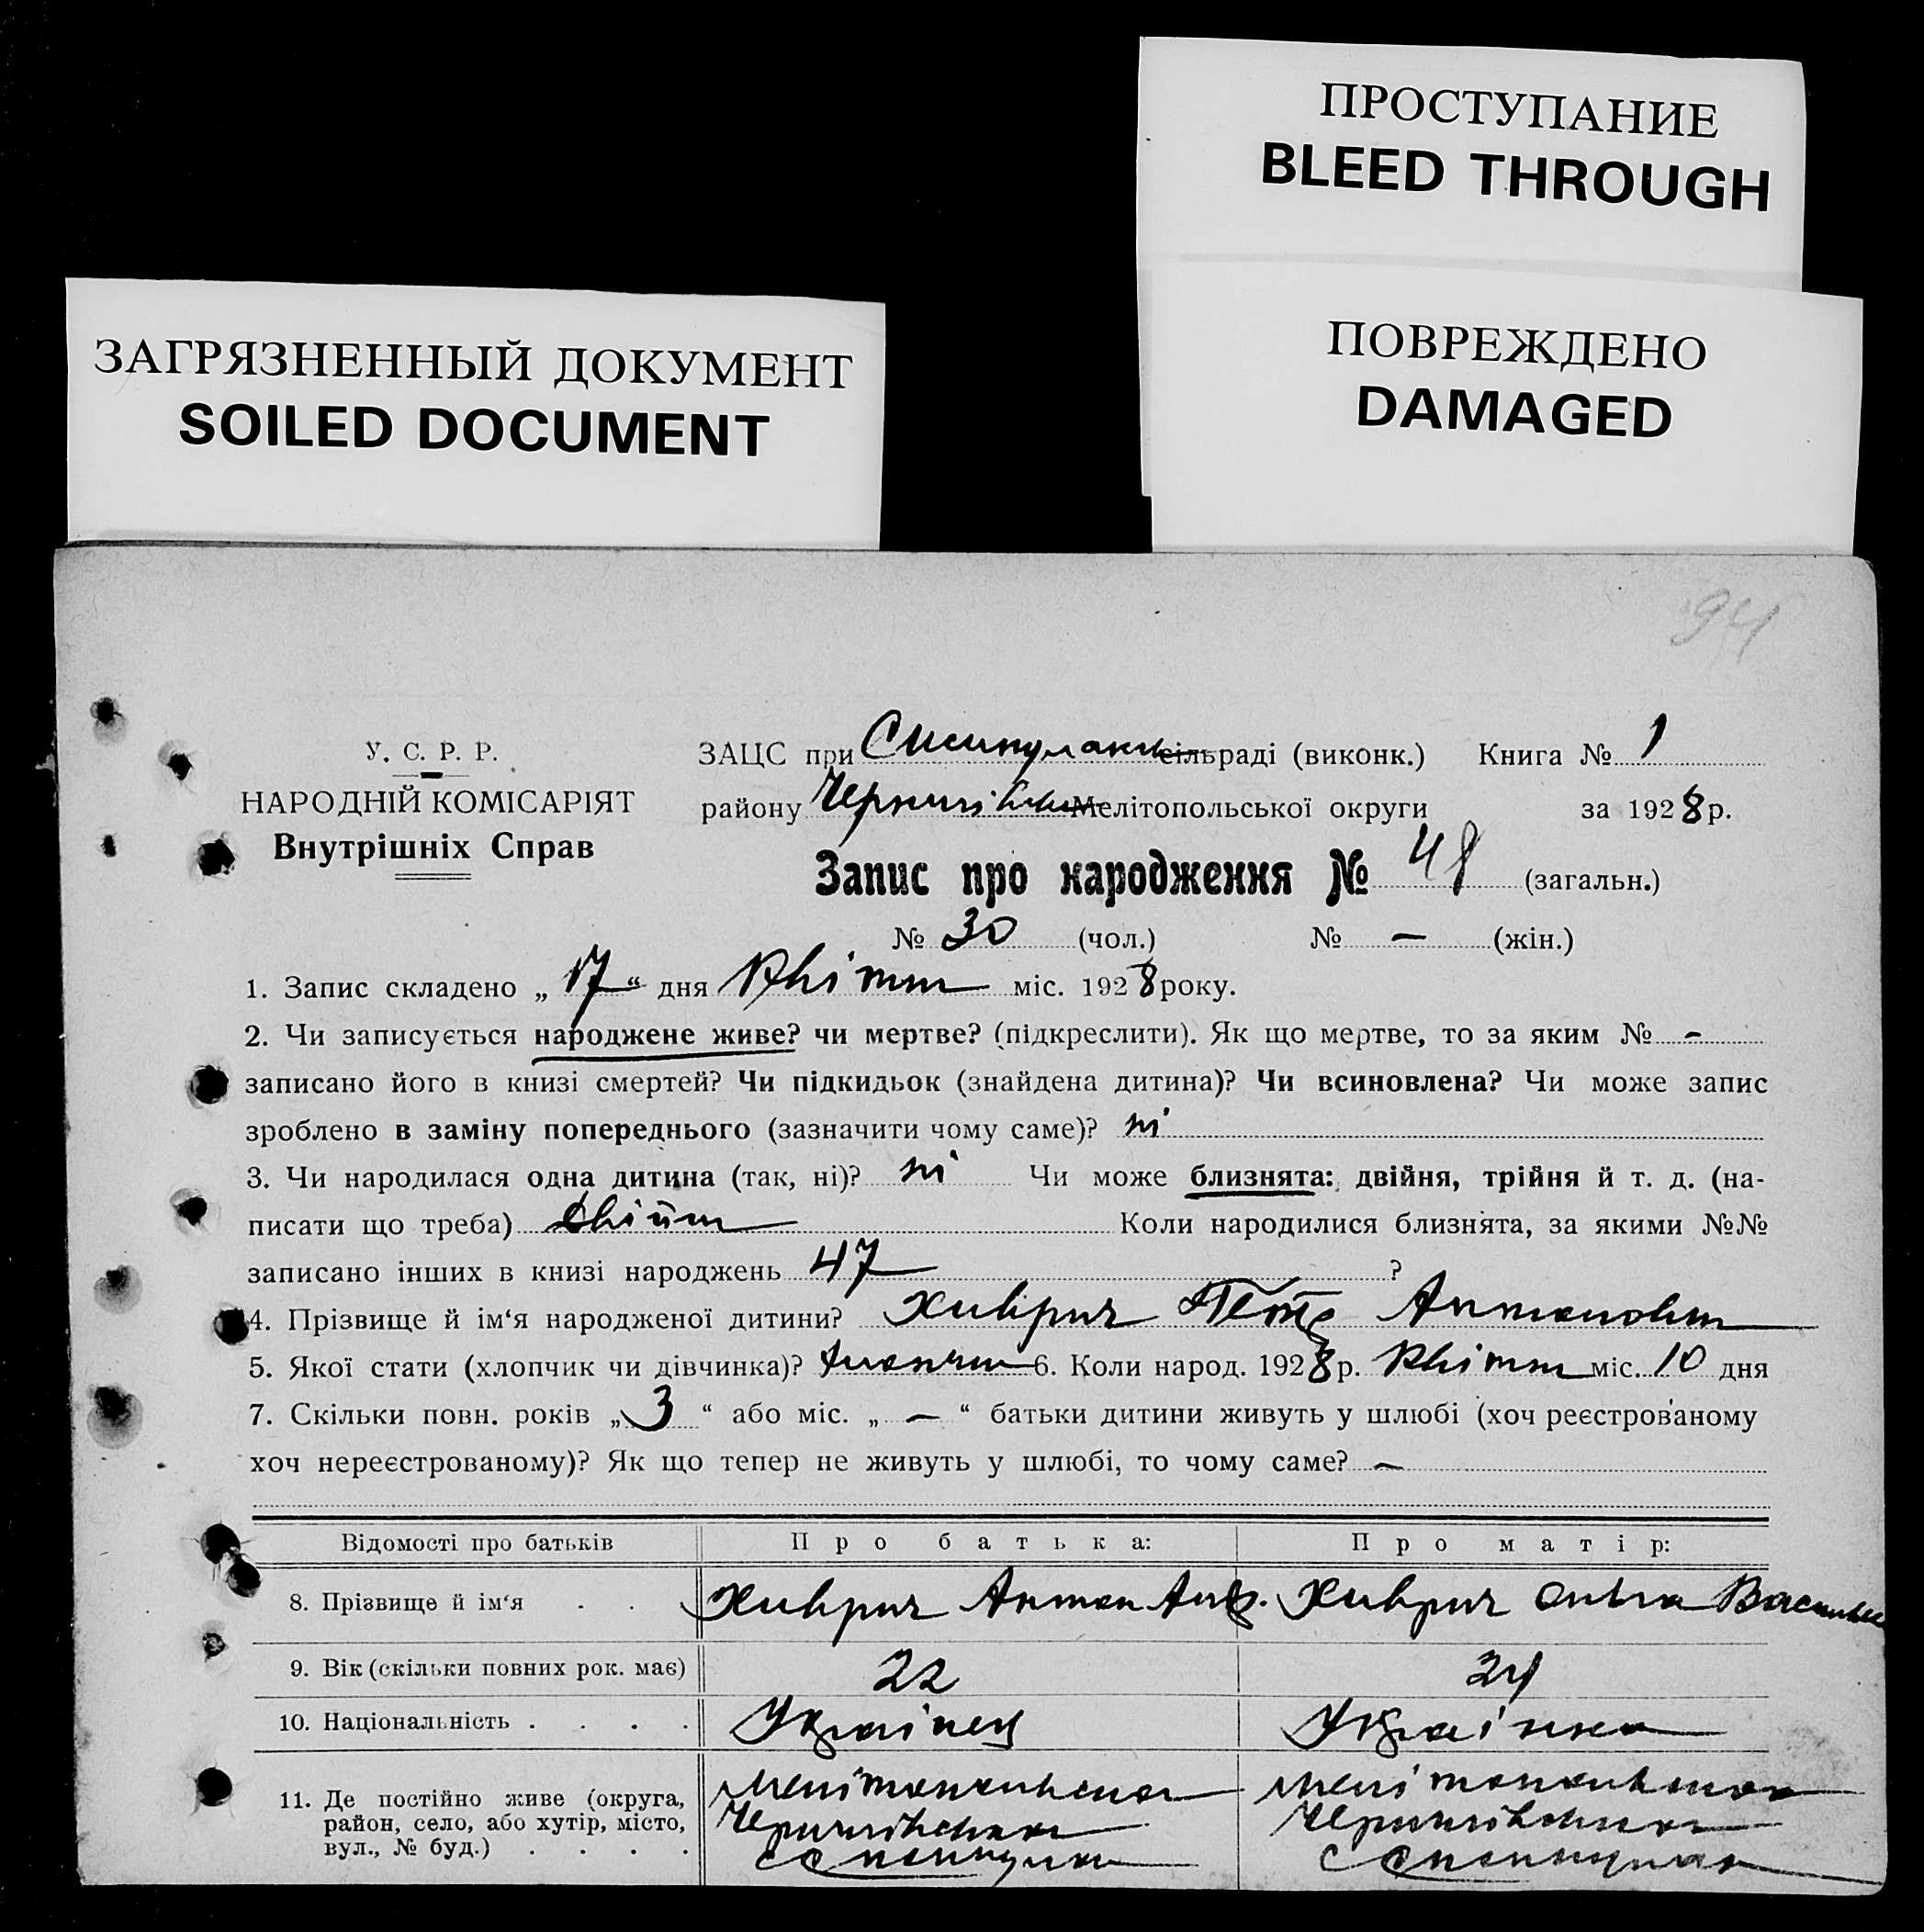 ПРОСТУПАНИЕ
BLEED THROUGH
ЗАГРЯЗНЕННЫЙ ДОКУМЕНТ
SOILED DOCUMENT
ПОВРЕЖДЕНО
DAMAGED
94
У. С. Р. Р.
НАРОДНІЙ КОМІСАРІЯТ
Внутрішніх Справ
ЗАЦС при сільраді (виконк.) Книга № 1
району Мелітопольської округи за 1928 р.
Запис про народження № 48 (загальн.)
№ 30 (чол.) № — (жін.)
1. Запис складено „ 17 “ дня Квітня міс. 1928 року.
2. Чи записується народжене живе? чи мертве? (підкреслити). Як що мертве, то за яким № -
записано його в книзі смертей? Чи підкидьок (знайдена дитина)? Чи всиновлена? Чи може запис
зроблено в заміну попереднього (зазначити чому саме)? ні
3. Чи народилася одна дитина (так, ні)? ні Чи може близнята: двійня, трійня й т. д. (на-
писати що треба) двійня Коли народилися близнята, за якими №№
записано інших в книзі народжень 47 ?
4. Прізвище й ім‘я народженої дитини? Хиврич Петр Антонович
5. Якої стати (хлопчик чи дівчинка)? хлопчик 6. Коли народ. 1928 р. Квітня міс. 10 дня
7. Скільки повн. років „ 3 “ або міс. „ — “ батьки дитини живуть у шлюбі (хоч реєстрованому
хоч нереєстрованому)? Як що тепер не живуть у шлюбі, то чому саме? —
Відомості про батьків Про батька: Про матір:
8. Прізвище й ім‘я . . Хиврич Антон Хиврич Ольга
9. Вік (скільки повних рок. має) 22 24
10. Національність . . . . Українец Українка
11. Де постійно живе (округа, Мелітопольська Мелітопольська
район, село, або хутір, місто, Чернигівська Чернигівська
вул., № буд.) . . . .